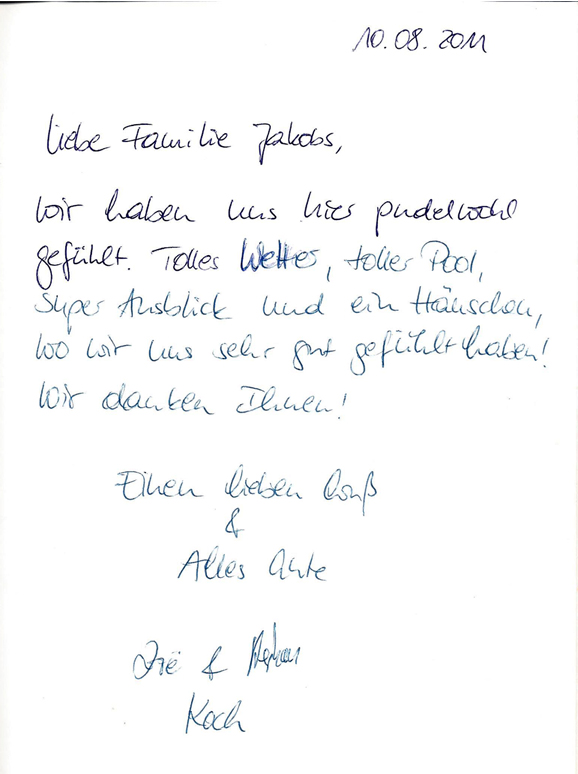 10.08.2011
Liebe Familie Jakobs,
wir haben uns hier pudelwohl
gefühlt. Tolles Wetter, toller Pool,
super Ausblick und ein Häuschen,
wo wir uns sehr gut gefühlt haben!
Wir danken Ihnen!
Einen lieben Gruß
&
Alles Gute
&
Koch